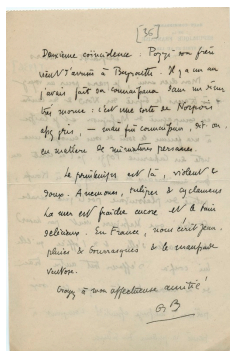 [36]
Deuxième coincidence. Pozzi mon frère
vient d'arriver à Beyrouth. Il y a un an
j'avais fait sa connaissance dans un dîner
très morne : c'est une sorte de Norpois
— mais fin connaisseur, dit-on,
en matière de miniatures persanes.
Le printemps est là, violent &
doux. Anemones, tulipes & cyclamens
La mer est fraîche encore et le bain
délicieux. En France, nous écrit-on,
pluies & bourrasques & le
Croyez à mon affectueuse amitié
GB